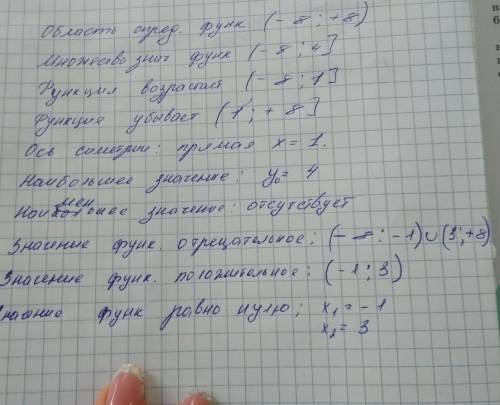 Область опред. функ. (-8; +8)
Множество знач функ (-8; 4]
Функция возрастает (-8; 1]
Функция убывает (1; +8]
Ось симетрии: прямая x = 1.
Наибольшее значение: y₀ = 4
Наименьшее значение: отсутствует
Значение функ. отрецательное: (-8: -1)∪(3; +8)
Значение функ. положительное: (-1; 3)
функ равно нулю; x₁ = -1
x₂ = 3